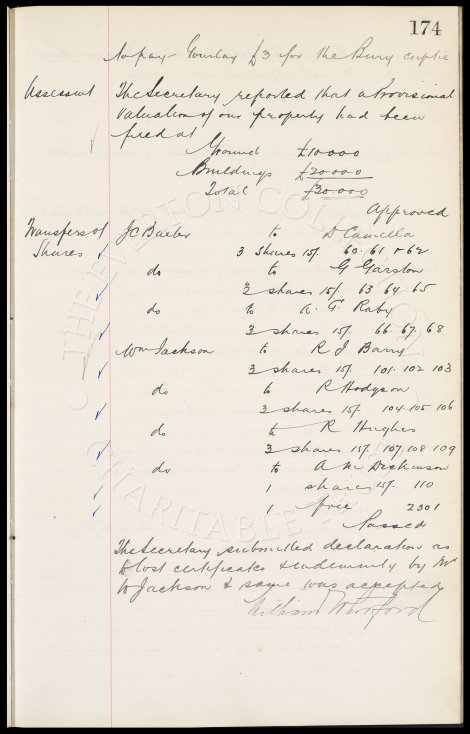 174
to pay Gourlay £3 for the Bury cup tie
Assessmt The Secretary reported that a Provisional
Valuation of our property had been
fixed at
Ground £10000
Buildings £20000
Total £30000
Approved
Transfers of J C Baxter to D Camella
Shares 3 shares 15/- 60. 61 & 62
do to G Garston
3 shares 15/- 63 64 65
do to A. G. Raby
3 shares 15/- 66. 67. 68
Wm Jackson to R J Barry
3 shares 15/- 101. 102 103
do to R Hodgson
3 shares 15/- 104. 105 106
do to R Hughes
3 shares 15/- 107. 108 109
do to A M Dickinson
1 shares 15/- 110
1 free 2301
Passed
The Secretary submitted declaration as
to lost certificates & indemnity by Mr
W Jackson & same was accepted
William Whitford
THE EVERTON COLLECTION
CHARITABLE